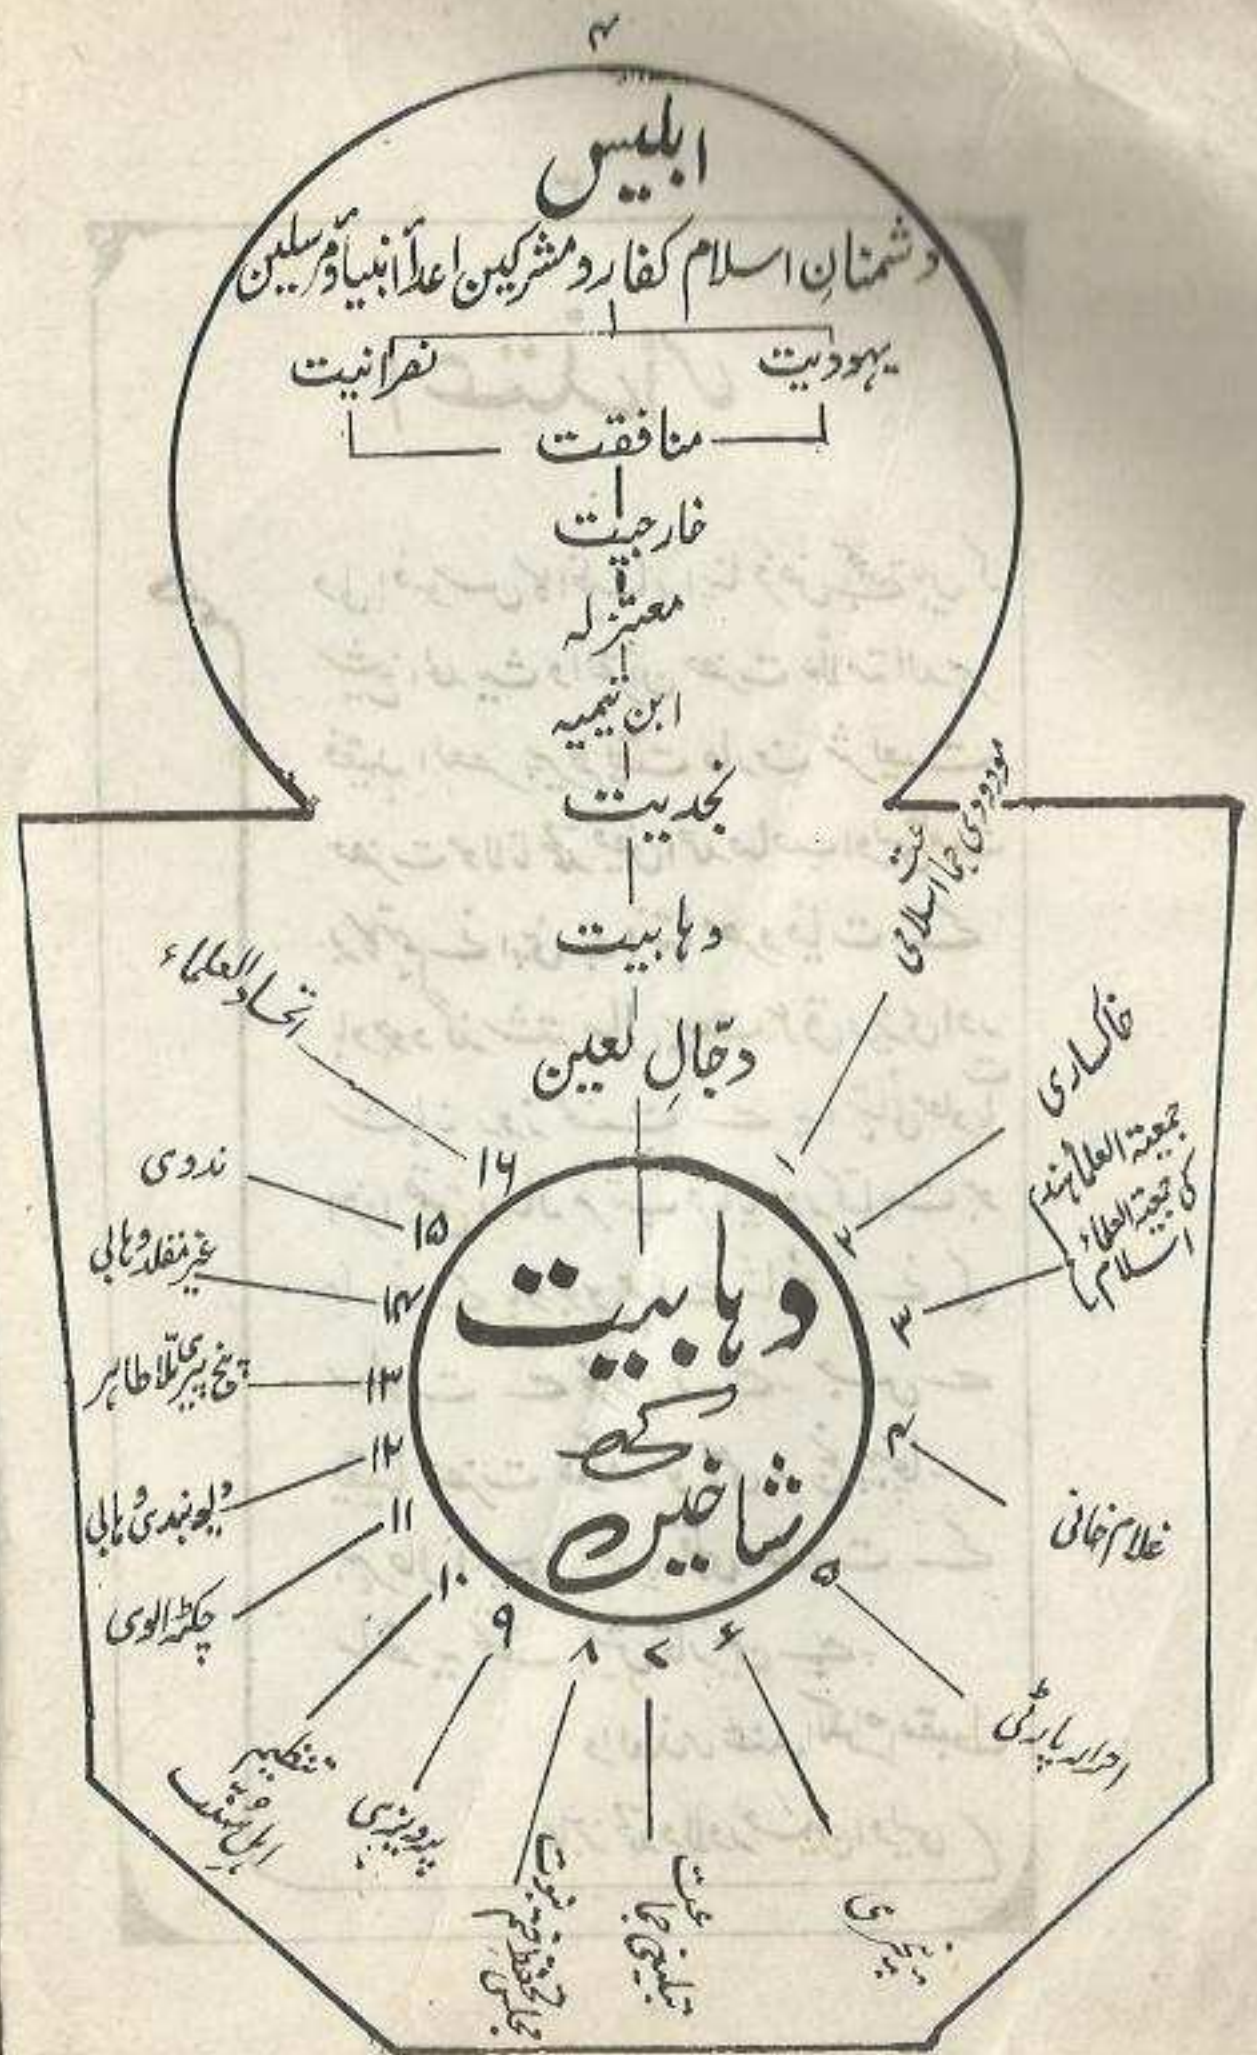 ۴
ابلیس
دشمنانِ اسلام کفار و مشرکین اعدأ انبیأ و مرسلین
یہودیت
نصرانیت
منافقت
خارجیت
معتزلہ
ابن تیمیہ
نجدیت
وہابیت
دجّالِ لعین
وہابیت
کی
شاخیں
۱
مودودی جماعت اسلامی
۲
خاکساری
۳
جمعیۃ العلمأ ہند
کی جمعیۃ العلماء
اسلام
۴
غلام خانی
۵
احرار پارٹی
۶
نیچری
۷
تبلیغی جماعت
۸
مجلسِ تحفظ ختم نبوت
۹
پرویزی
۱۰
تنظیم
اہل سُنّت
۱۱
چکڑالوی
۱۲
دیوبندی وہابی
۱۳
پنج پیری ملّا طاہر
۱۴
غیر مقلد وہابی
۱۵
ندوی
۱۶
اتحاد العلماء